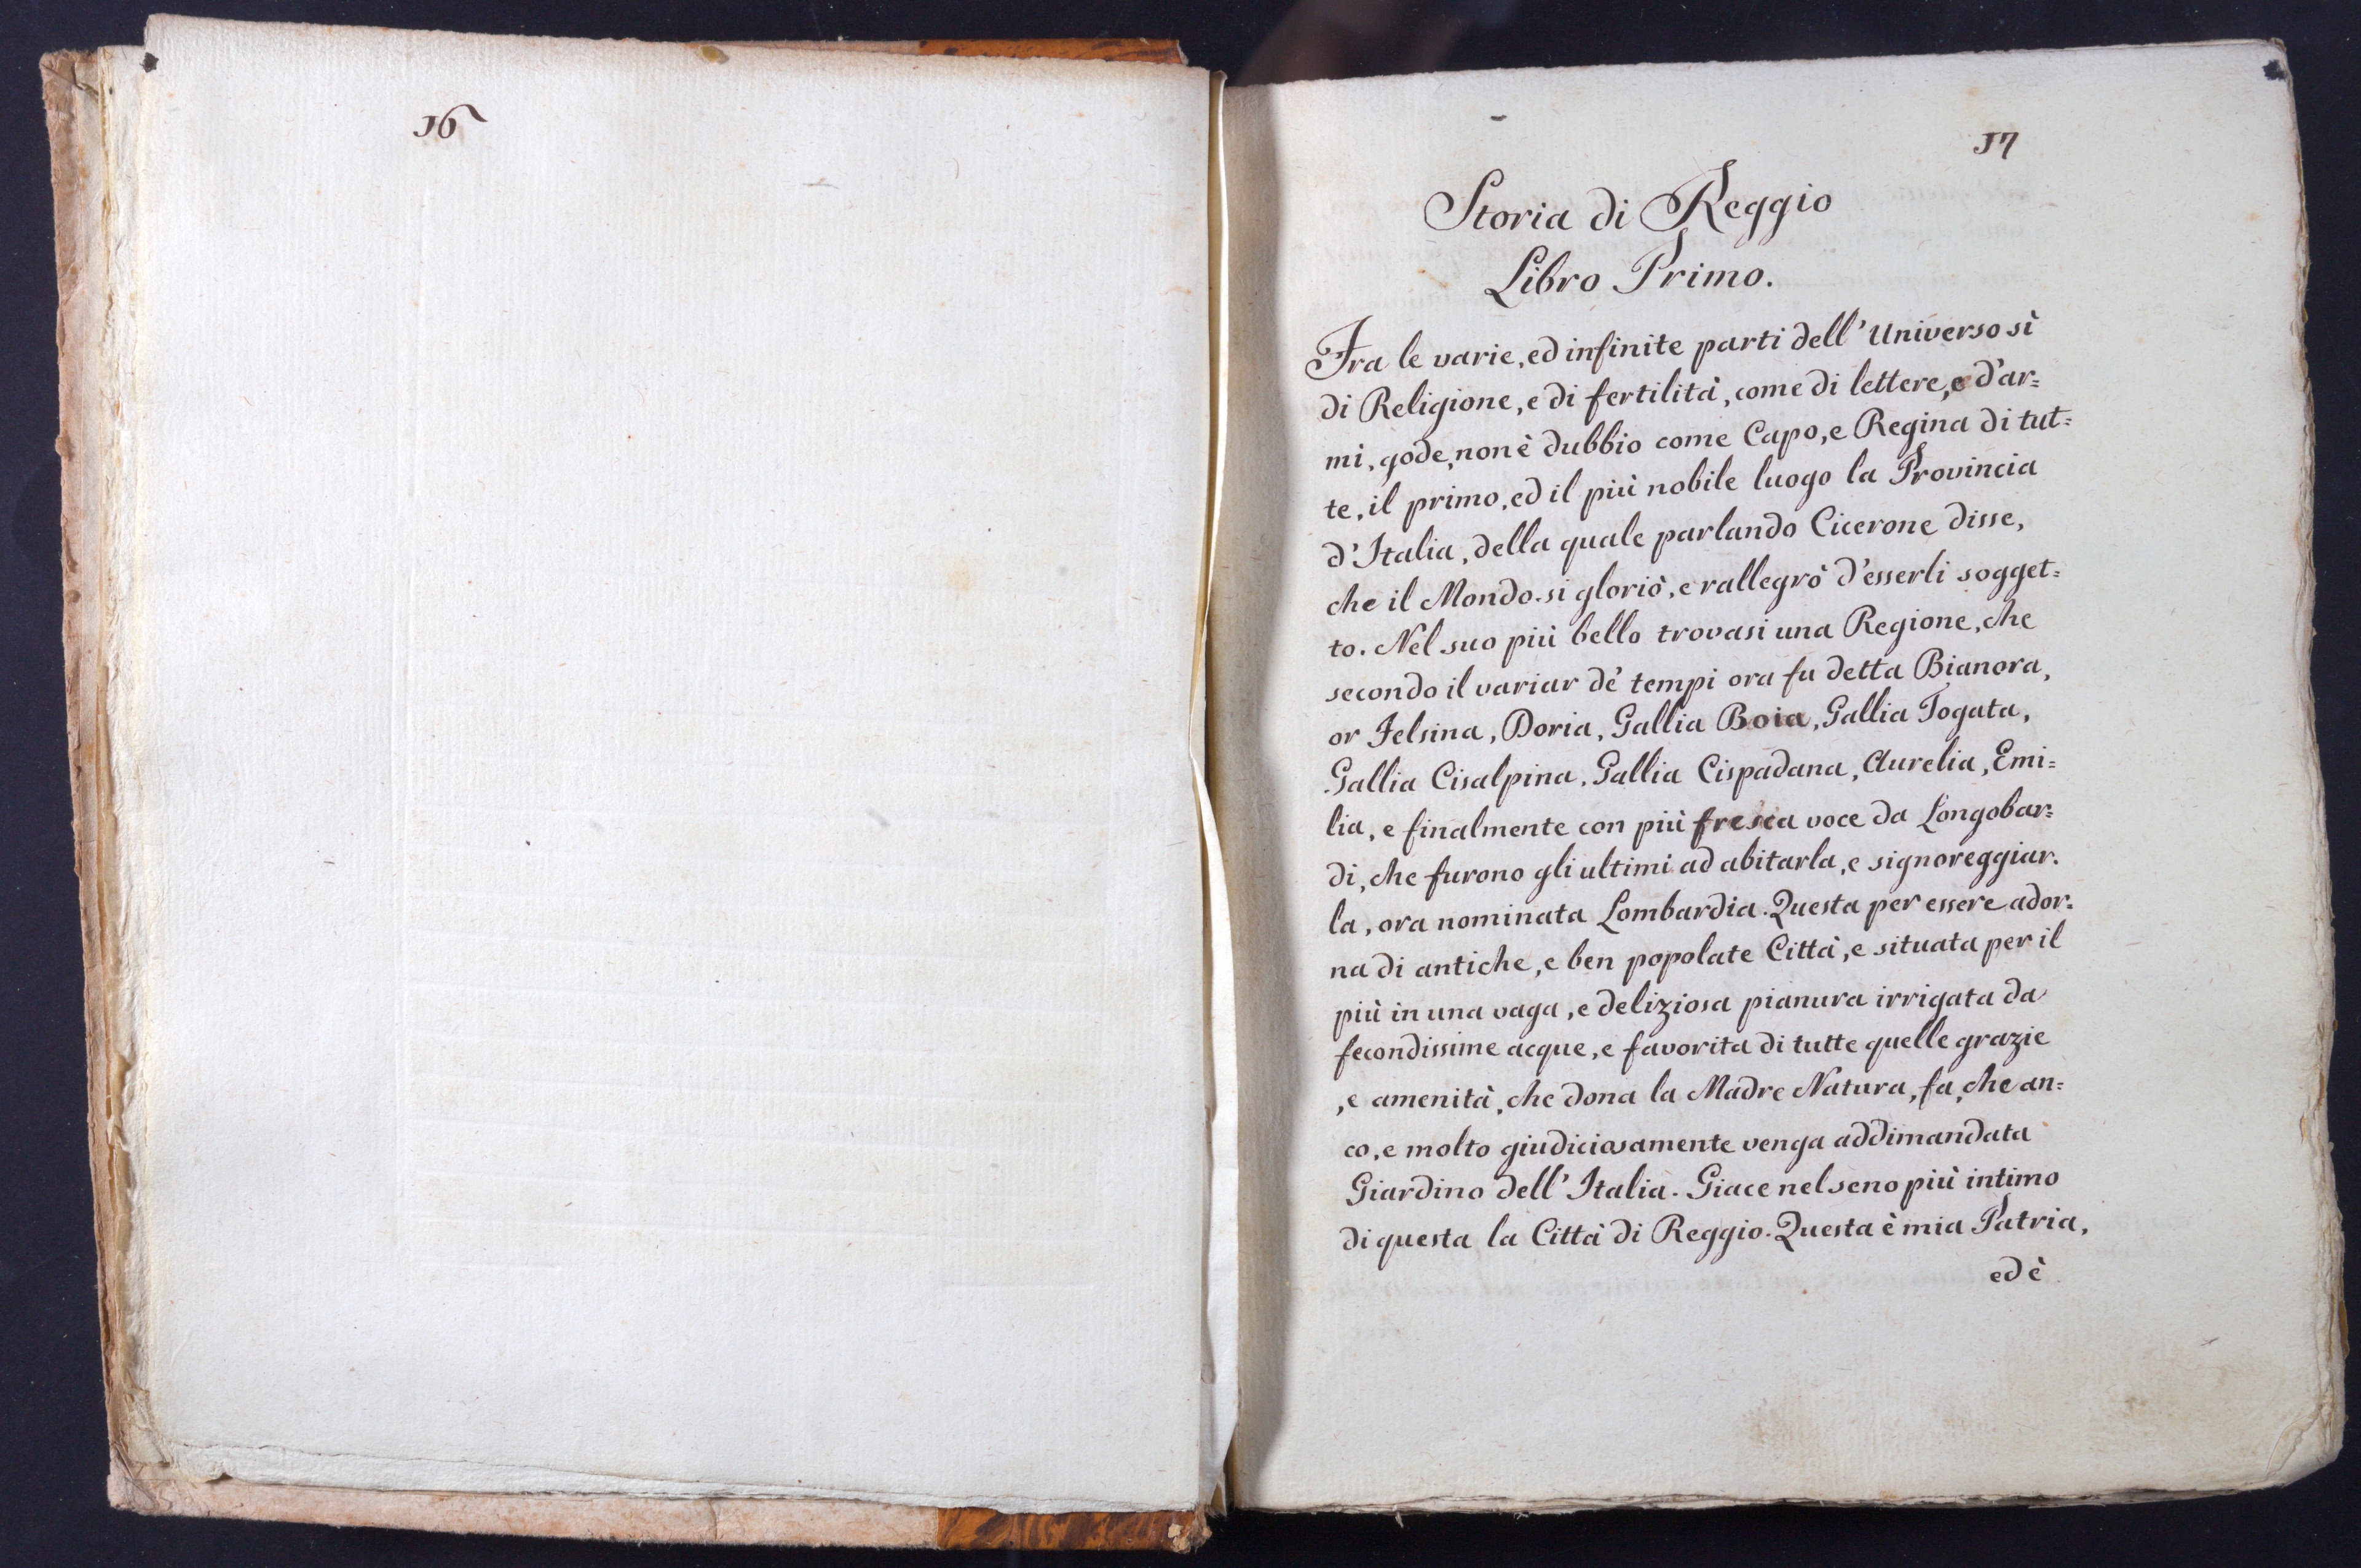 16
17
Storia di Reggio
Libro Primo.
Fra le varie, ed infinite parti dell' Universo sì
di Religione, e di fertilità, come di lettere, e d'ar=
mi, gode, non è dubbio come Capo, e Regina di tut=
te, il primo, ed il più nobile luogo la Provincia
d'Italia, della quale parlando Cicerone disse,
che il Mondo si gloriò, e rallegrò d'esserli sogget=
to. Nel suo più bello trovasi una Regione, che
secondo il variar de' tempi ora fu detta Bianora,
or Felsina, Doria, Gallia Boia, Gallia Togata,
Gallia Cisalpina, Gallia Cispadana, Aurelia, Emi=
lia, e finalmente con più fresca voce da Longobar=
di, che furono gli ultimi ad abitarla, e signoreggiar.
la, ora nominata Lombardia. Questa per essere ador=
na di antiche, e ben popolate Città, e situata per il
più in una vaga, e deliziosa pianura irrigata da
fecondissime acque, e favorita di tutte quelle grazie
, e amenità, che dona la Madre Natura, fa, che an=
co, e molto giudiciosamente venga addimandata
Giardino dell' Italia. Giace nel seno più intimo
di questa la Città di Reggio. Questa è mia Patria,
ed è